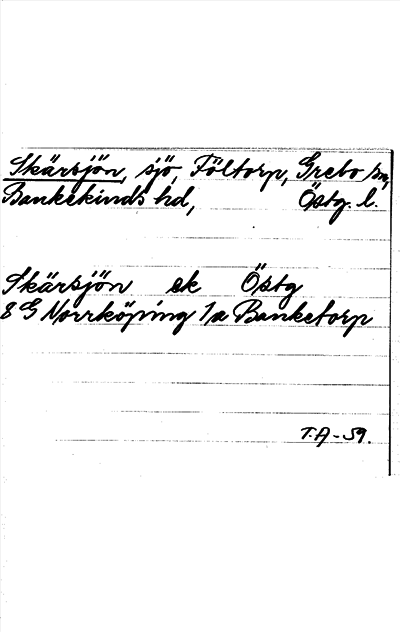 Skärsjön, sjö, Föltorp, Grebo sn,
Bankekinds hd, Östg. l.
Skärsjön ek Östg
8 G Norrköping 1a Banketorp
T.A-59.